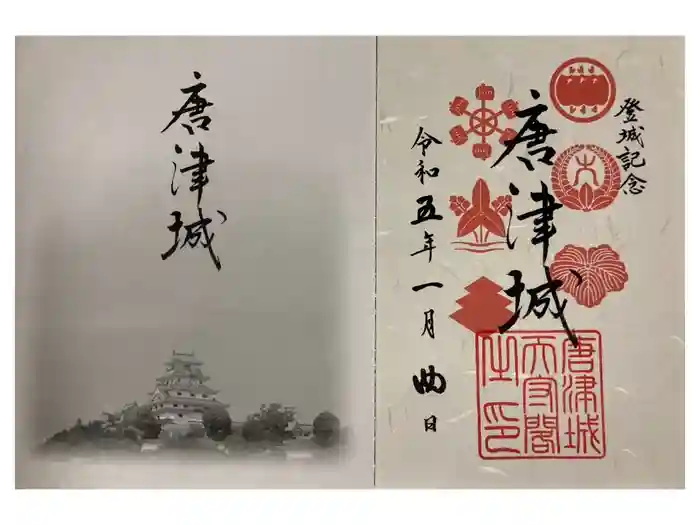 唐津城
登城記念
唐津城
令和五年一月四日
唐津城
天守閣
之印